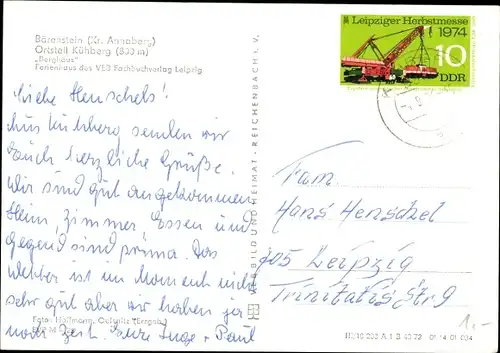 Bärenstein (Kr. Annaberg)
Ortsteil Kühberg (800 m)
„Berghaus"
Ferienhaus des VEB Fachbuchverlag Leipzig
Liebe Henschels!
Aus Kühberg senden wir
Euch herzliche Grüße.
Wir sind gut angekommen
Heim, Zimmer, Essen und
Gegend sind prima. Das
Wetter ist im Moment nicht
sehr gut aber wir haben ja
noch Zeit. Eure Inge + Paul
Foto: Hoffmann, Oelsnitz (Erzgeb.)
BILD UND HEIMAT · REICHENBACH i. V.
Leipziger Herbstmesse
1974
10
DDR
Fam.
Hans Henschel
705 Leipzig
Trinitatisstr 9
01 14 01 034
1,-